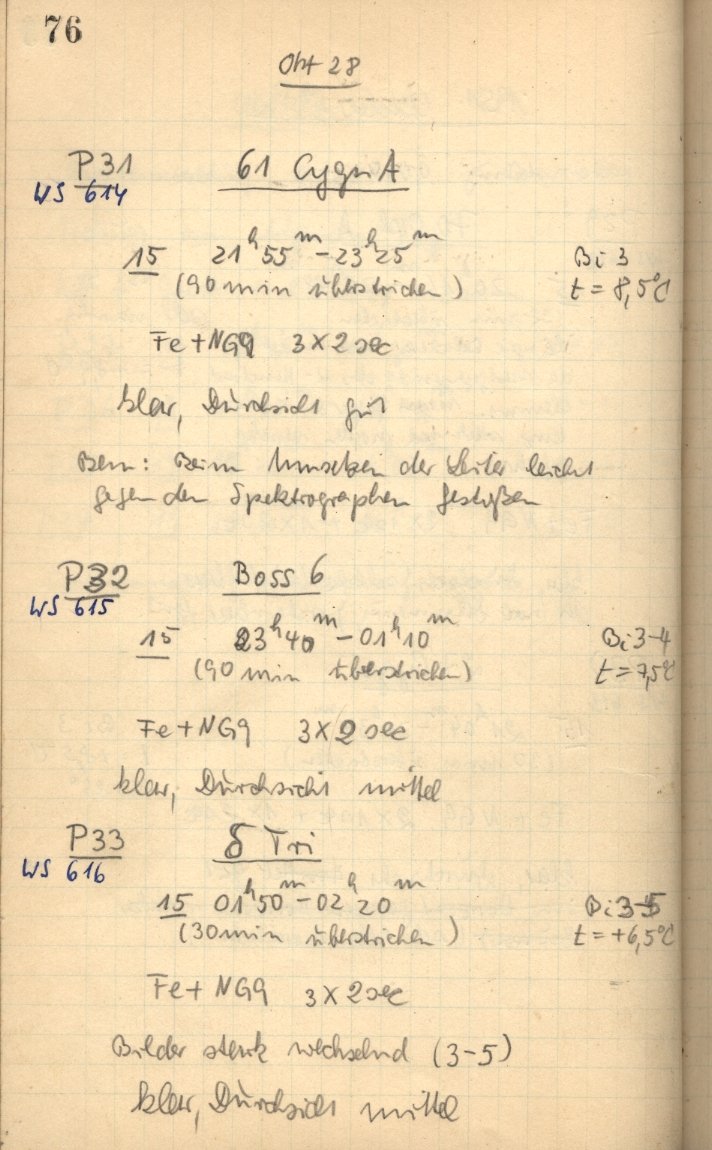 76
Okt 28
P31 61 Cygni A
WS 614
15 21ʰ55ᵐ–23ʰ25ᵐ Bi 3
(90 min überstrichen) t = 8,5°C
Fe+NG9 3×2 sec
klar, Durchsicht gut
Bem: Beim Umsetzen der Leiter leicht
gegen den Spektrographen gestoßen
P32 Boss 6
WS 615
15 23ʰ40ᵐ–01ʰ10ᵐ Bi 3-4
(90 min überstrichen) t = 7,5°C
Fe+NG9 3×2 sec
klar, Durchsicht mittel
P33 δ Tri
WS 616
15 01ʰ50ᵐ–02ʰ20ᵐ Bi 3-5
(30 min überstrichen) t = +6,5°C
Fe+NG9 3×2 sec
Bilder stark wechselnd (3-5)
klar, Durchsicht mittel